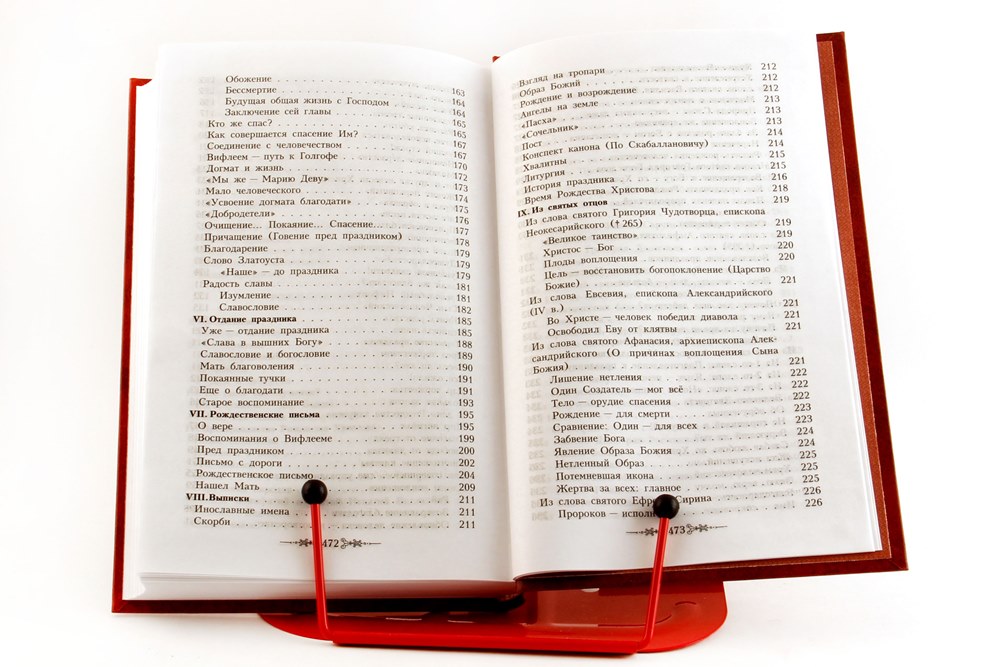 Обожение . . . 163
Бессмертие . . . 164
Будущая общая жизнь с Господом . . . 164
Заключение сей главы . . . 165
Кто же спас? . . . 165
Как совершается спасение Им? . . . 167
Соединение с человечеством . . . 167
Вифлеем — путь к Голгофе . . . 170
Догмат и жизнь . . . 172
«Мы же — Марию Деву» . . . 173
Мало человеческого . . . 174
«Усвоение догмата благодати» . . . 175
«Добродетели» . . . 176
Очищение... Покаяние... Спасение... . . . 177
Причащение (Говение пред праздником) . . . 178
Благодарение . . . 179
Слово Златоуста . . . 179
«Наше» — до праздника . . . 179
Радость славы . . . 181
Изумление . . . 181
Славословие . . . 182
VI. Отдание праздника . . . 185
Уже — отдание праздника . . . 185
«Слава в вышних Богу» . . . 188
Славословие и богословие . . . 189
Мать благоволения . . . 190
Покаянные тучки . . . 191
Еще о благодати . . . 191
Старое воспоминание . . . 193
VII. Рождественские письма . . . 195
О вере . . . 195
Воспоминания о Вифлееме . . . 199
Пред праздником . . . 200
Письмо с дороги . . . 202
Рождественское письмо . . . 204
Нашел Мать . . . 209
VIII. Выписки . . . 211
Инославные имена . . . 211
Скорби . . . 211
472
Взгляд на тропари . . . 212
Образ Божий . . . 212
Рождение и возрождение . . . 212
Ангелы на земле . . . 213
«Пасха» . . . 213
«Сочельник» . . . 213
Пост . . . 214
Конспект канона (По Скабаллановичу) . . . 214
Хвалитны . . . 215
Литургия . . . 215
История праздника . . . 216
Время Рождества Христова . . . 218
IX. Из святых отцов . . . 219
Из слова святого Григория Чудотворца, епископа
Неокесарийского († 265) . . . 219
«Великое таинство» . . . 219
Христос — Бог . . . 220
Плоды воплощения . . . 220
Цель — восстановить богопоклонение (Царство
Божие) . . . 221
Из слова Евсевия, епископа Александрийского
(IV в.) . . . 221
Во Христе — человек победил диавола . . . 221
Освободил Еву от клятвы . . . 221
Из слова святого Афанасия, архиепископа Алек-
сандрийского (О причинах воплощения Сына
Божия) . . . 221
Лишение нетления . . . 222
Один Создатель — мог всё . . . 222
Тело — орудие спасения . . . 222
Рождение — для смерти . . . 223
Сравнение: Один — для всех . . . 223
Забвение Бога . . . 224
Явление Образа Божия . . . 224
Нетленный Образ . . . 225
Потемневшая икона . . . 225
Жертва за всех: главное . . . 225
Из слова святого Сирина . . . 226
Пророков — . . . 226
473